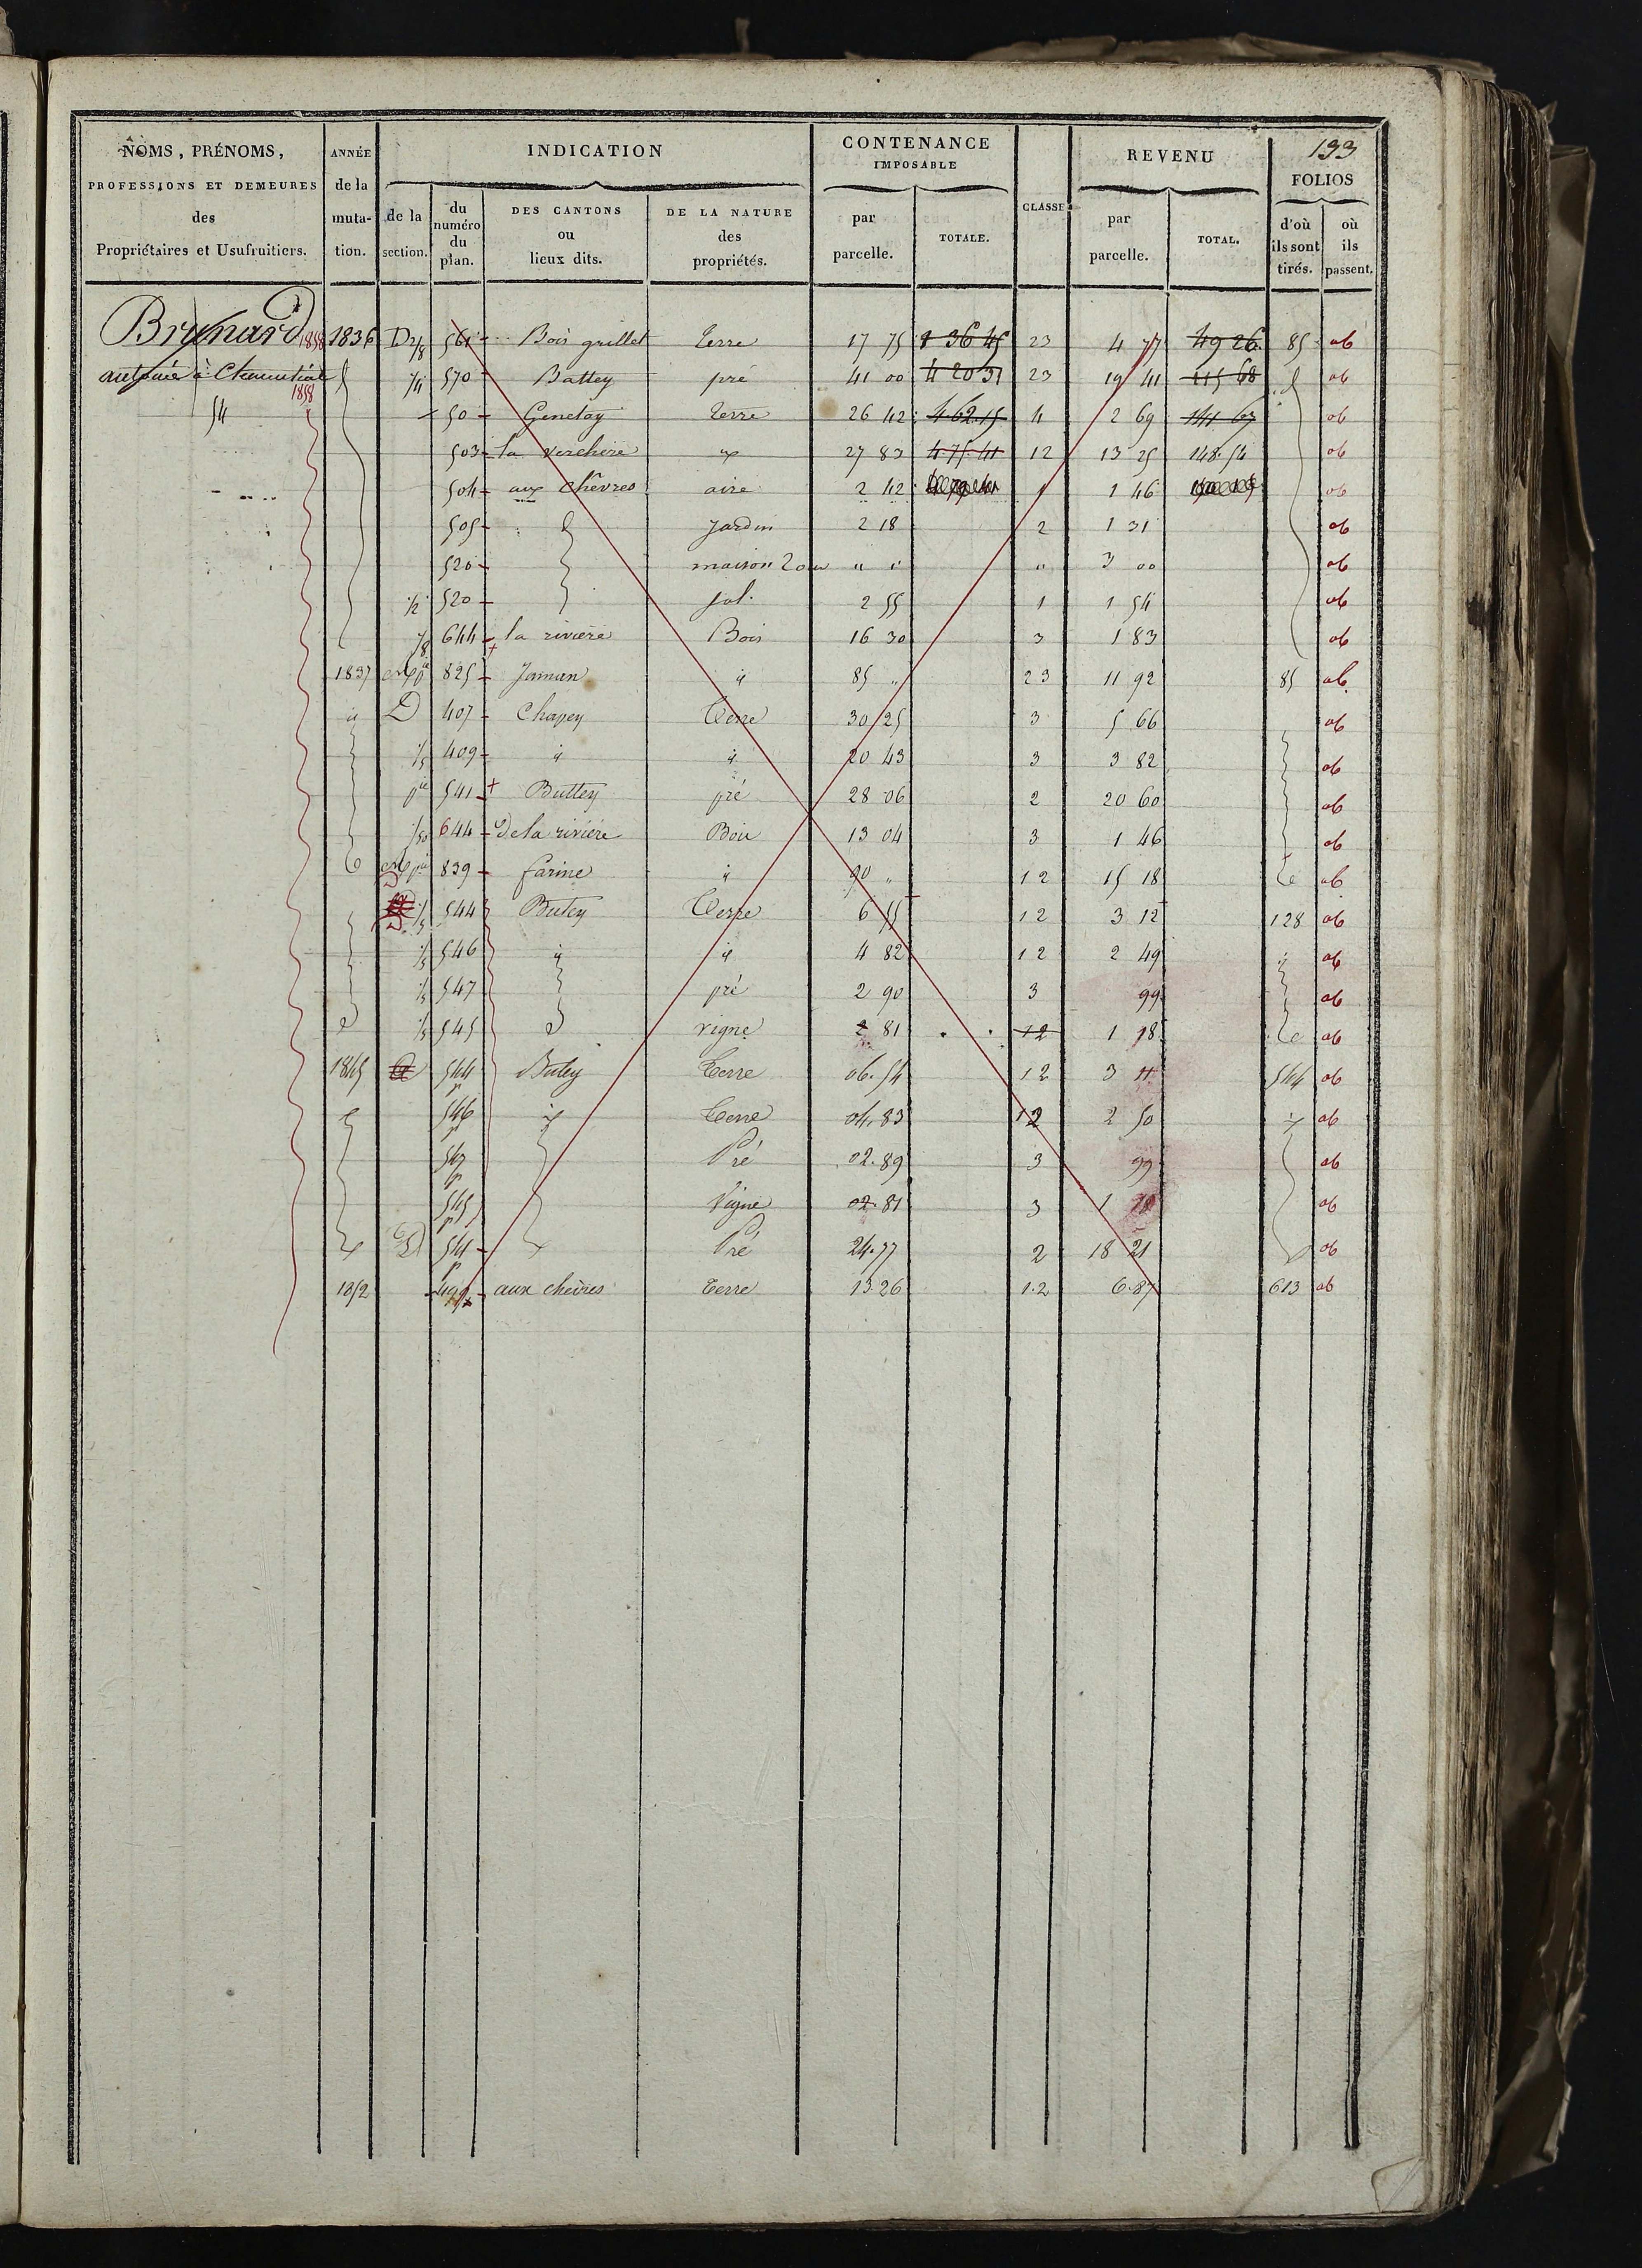 133
NOMS, PRÉNOMS,
PROFESSIONS ET DEMEURES
des
Propriétaires et Usufruitiers.
ANNÉE
de la
muta-
tion.
INDICATION
de la
section.
du
numéro
du
plan.
DES CANTONS
ou
lieux dits.
DE LA NATURE
des
propriétés.
CONTENANCE
IMPOSABLE
par
parcelle.
TOTALE.
CLASSE
REVENU
par
parcelle.
TOTAL.
FOLIOS
d'où
ils sont
tirés.
où
ils
passent.
Brunard 1858 1836 D 2/8 561 Bois grillet terre 17 75 1 36 45 23 4 77 49 26 85 ob
à 1858 1/4 570 Battey pré 41 00 4 20 31 23 19 41 115 68 ob
54 50 Genetay terre 26 42 4.62.15 4 2 69 141 67 ob
503 la verchère 27 83 4.75.41 12 13 25 148.54 ob
504 aux chèvres aire 2 42 1 1 46 ob
505 Jardin 2 18 2 1 31 ob
520 maison " " " 3 00 ob
1/2 520 sol. 2 55 1 1 54 ob
1/8 644 la rivière Bois 16 30 3 1 83 ob
1837 825 Jaman " 85 " 23 11 92 85 ob
" D 407 Chapey Terre 30 25 3 5 66 ob
1/5 409 " " 20 43 3 3 82 ob
pie 541 Buttey pré 28 06 2 20 60 ob
644 De la rivière Bois 13 04 3 1 46 ob
839 farine " 90 " 12 15 18 ob
1/5 544 Butey Terre 6 55 12 3 12 128 ob
1/5 546 " " 4 82 12 2 49 " ob
1/5 547 pré 2 90 3 99 ob
1/5 545 vigne 2 81 12 1 18 ob
1845 544 p Butey Terre 06.54 12 3 11 544 ob
546 p Terre 04.83 12 2 50 ob
547 p Pré 02.89 3 99 ob
545 p Vigne 02.81 3 1 18 ob
D 541 p Pré 24.77 2 18 21 ob
1852 499 aux chèvres terre 13.26 1.2 6.87 613 ob